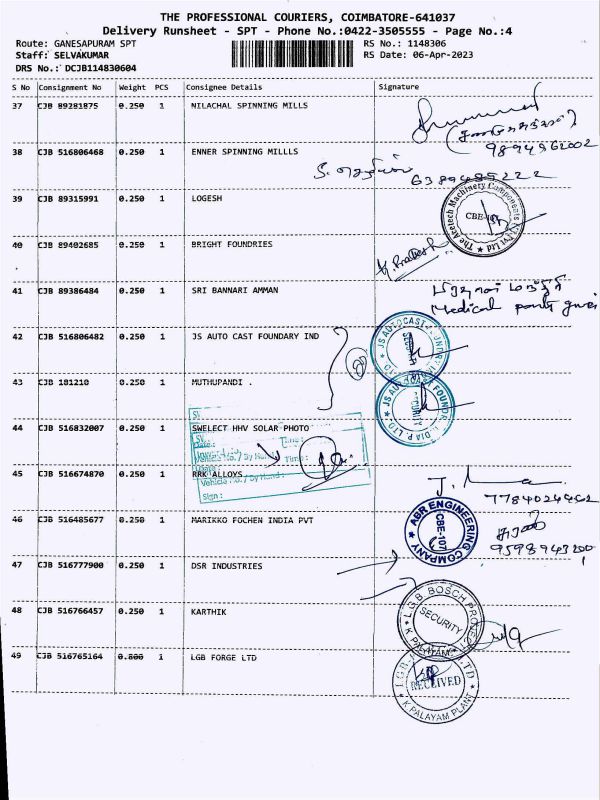 THE PROFESSIONAL COURIERS, COIMBATORE-641037
Delivery Runsheet - SPT - Phone No.:0422-3505555 - Page No.:4
Route: GANESAPURAM SPT
RS No.: 1148306
Staff: SELVAKUMAR
RS Date: 06-Apr-2023
DRS No.: DCJB114830604
S No Consignment No Weight PCS Consignee Details Signature
37 CJB 89281875 0.250 1 NILACHAL SPINNING MILLS
38 CJB 516806468 0.250 1 ENNER SPINNING MILLLS
39 CJB 89315991 0.250 1 LOGESH
The Acetech Machinery Components
40 CJB 89402685 0.250 1 BRIGHT FOUNDRIES
41 CJB 89386484 0.250 1 SRI BANNARI AMMAN
Medical
42 CJB 516806482 0.250 1 JS AUTO CAST FOUNDARY IND
JS AUTOCAST
SECURITY
43 CJB 181210 0.250 1 MUTHUPANDI .
JS AUTOCAST FOUNDR INDIA P. LTD
SECURITY
44 CJB 516832007 0.250 1 SWELECT HHV SOLAR PHOTO
Time :
Vehicle No. / By Hand :
45 CJB 516674870 0.250 1 RRK ALLOYS
Sign :
46 CJB 516485677 0.250 1 MARIKKO FOCHEN INDIA PVT
ABR ENGINEERING COMPANY
CBE-107
47 CJB 516777900 0.250 1 DSR INDUSTRIES
48 CJB 516766457 0.250 1 KARTHIK
LGB BOSCH PROJECT
SECURITY
K PALAYAM
49 CJB 516765164 0.800 1 LGB FORGE LTD
RECEIVED
K PALAYAM PLANT